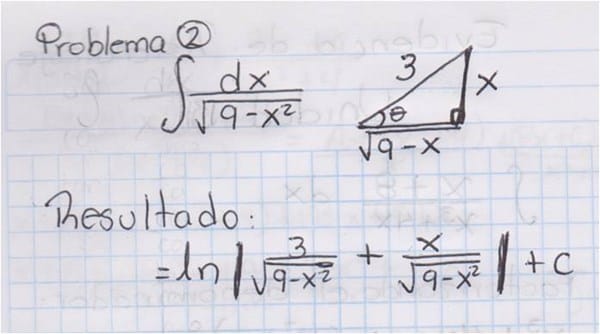 Problema ②
∫ dx / √(9-x²)
3
x
θ
√9-x
Resultado:
= ln | 3/√(9-x²) + x/√(9-x²) | + c